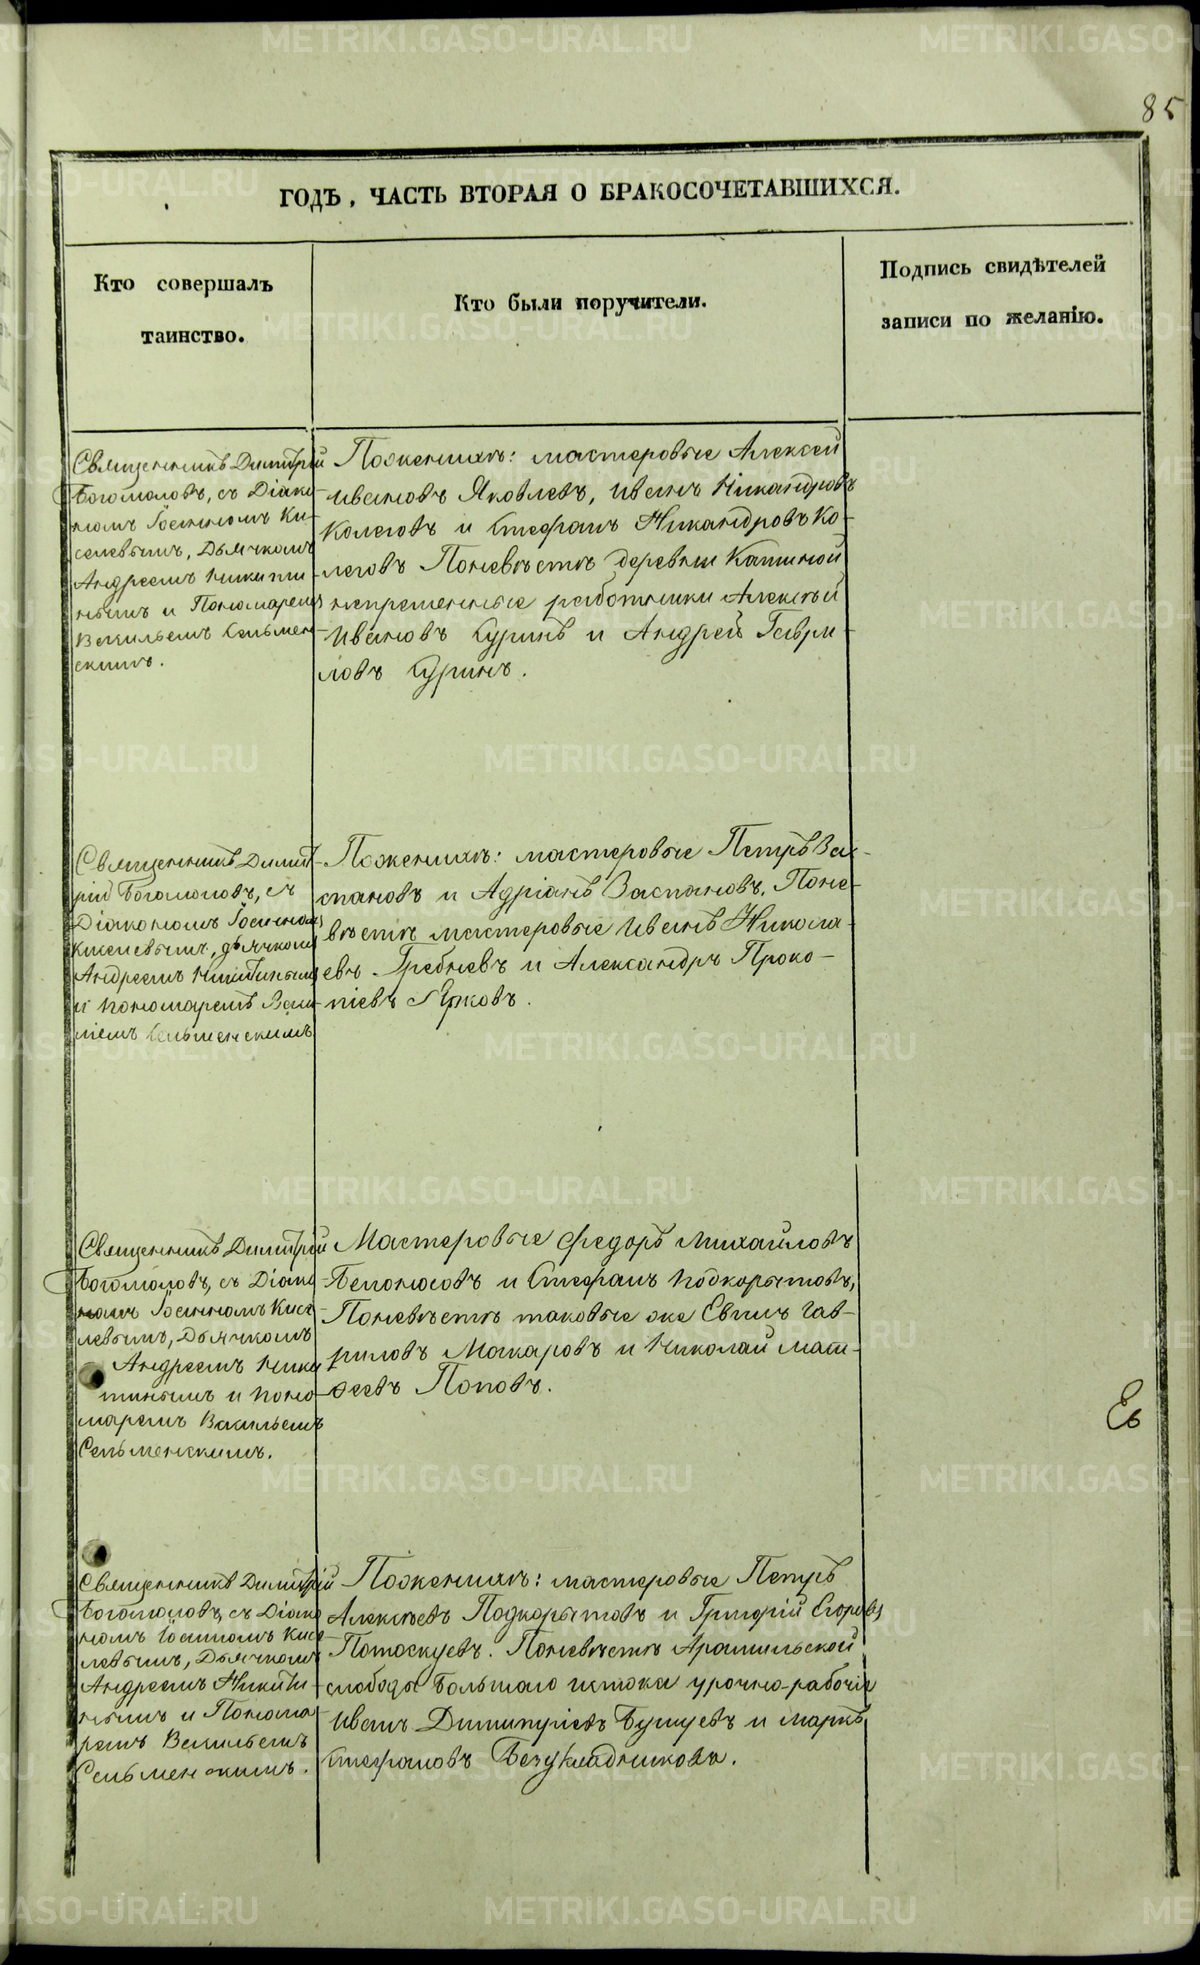 85
ГОДЪ, ЧАСТЬ ВТОРАЯ О БРАКОСОЧЕТАВШИХСЯ.
Кто совершалъ
таинство.
Кто были поручители.
Подпись свидѣтелей
записи по желанію.
Священникъ Димитрій
Богомоловъ, съ Діако-
номъ Іоанномъ Ки-
селевымъ, Дьячкомъ
Андреемъ Никити-
нымъ и Пономаремъ
Васильемъ Сельмен-
скимъ.
Поженихѣ: мастеровые Алексей
Ивановъ Яковлевъ, Иванъ Никандровъ
Колеговъ и Стефанъ Никандровъ Ко-
леговъ Поневѣстѣ деревни Кашиной
непременные работники Алексѣй
Ивановъ Суринъ и Андрей Гаври-
ловъ Суринъ.
Священникъ Димит-
рій Богомоловъ, съ
Діакономъ Іоанномъ
Киселевымъ, дьячкомъ
Андреемъ Никитинымъ
и пономаремъ Васи-
ліемъ Сельменскимъ
Поженихѣ: мастеровые Петръ За-
спановъ и Адріанъ Заспановъ. Поне-
вѣстѣ мастеровые Иванъ Никола-
евъ Гребневъ и Александръ Проко-
піевъ
Священникъ Димитрій
Богомоловъ, съ Діако
номъ Іоанномъ Кисе-
левымъ, Дьячкомъ
Андреемъ Ники
тинымъ и поно-
маремъ Васильемъ
Сельменскимъ.
Мастеровые Федоръ Михайловъ
Белоносовъ и Стефанъ Подкорытовъ,
Поневѣстѣ таковые же Евгит Гав-
риловъ Макаровъ и Николай Мат-
ѳеевъ Поповъ.
Священникъ Димитрій
Богомоловъ, съ Діако
номъ Іоанномъ Кисе-
левымъ, Дьячкомъ
Андреемъ Никити-
нымъ и Понома
ремъ Васильемъ
Сельменскимъ.
Поженихѣ: мастеровые Петръ
Алексѣевъ Подкорытовъ и Григорій Егоровъ
Потоскуевъ. Поневѣстѣ Арамильской
слободы Большаго истока урочно-рабочіе
Иванъ Димитріевъ Бушуевъ и Маркъ
Стефановъ Безукладниковъ.